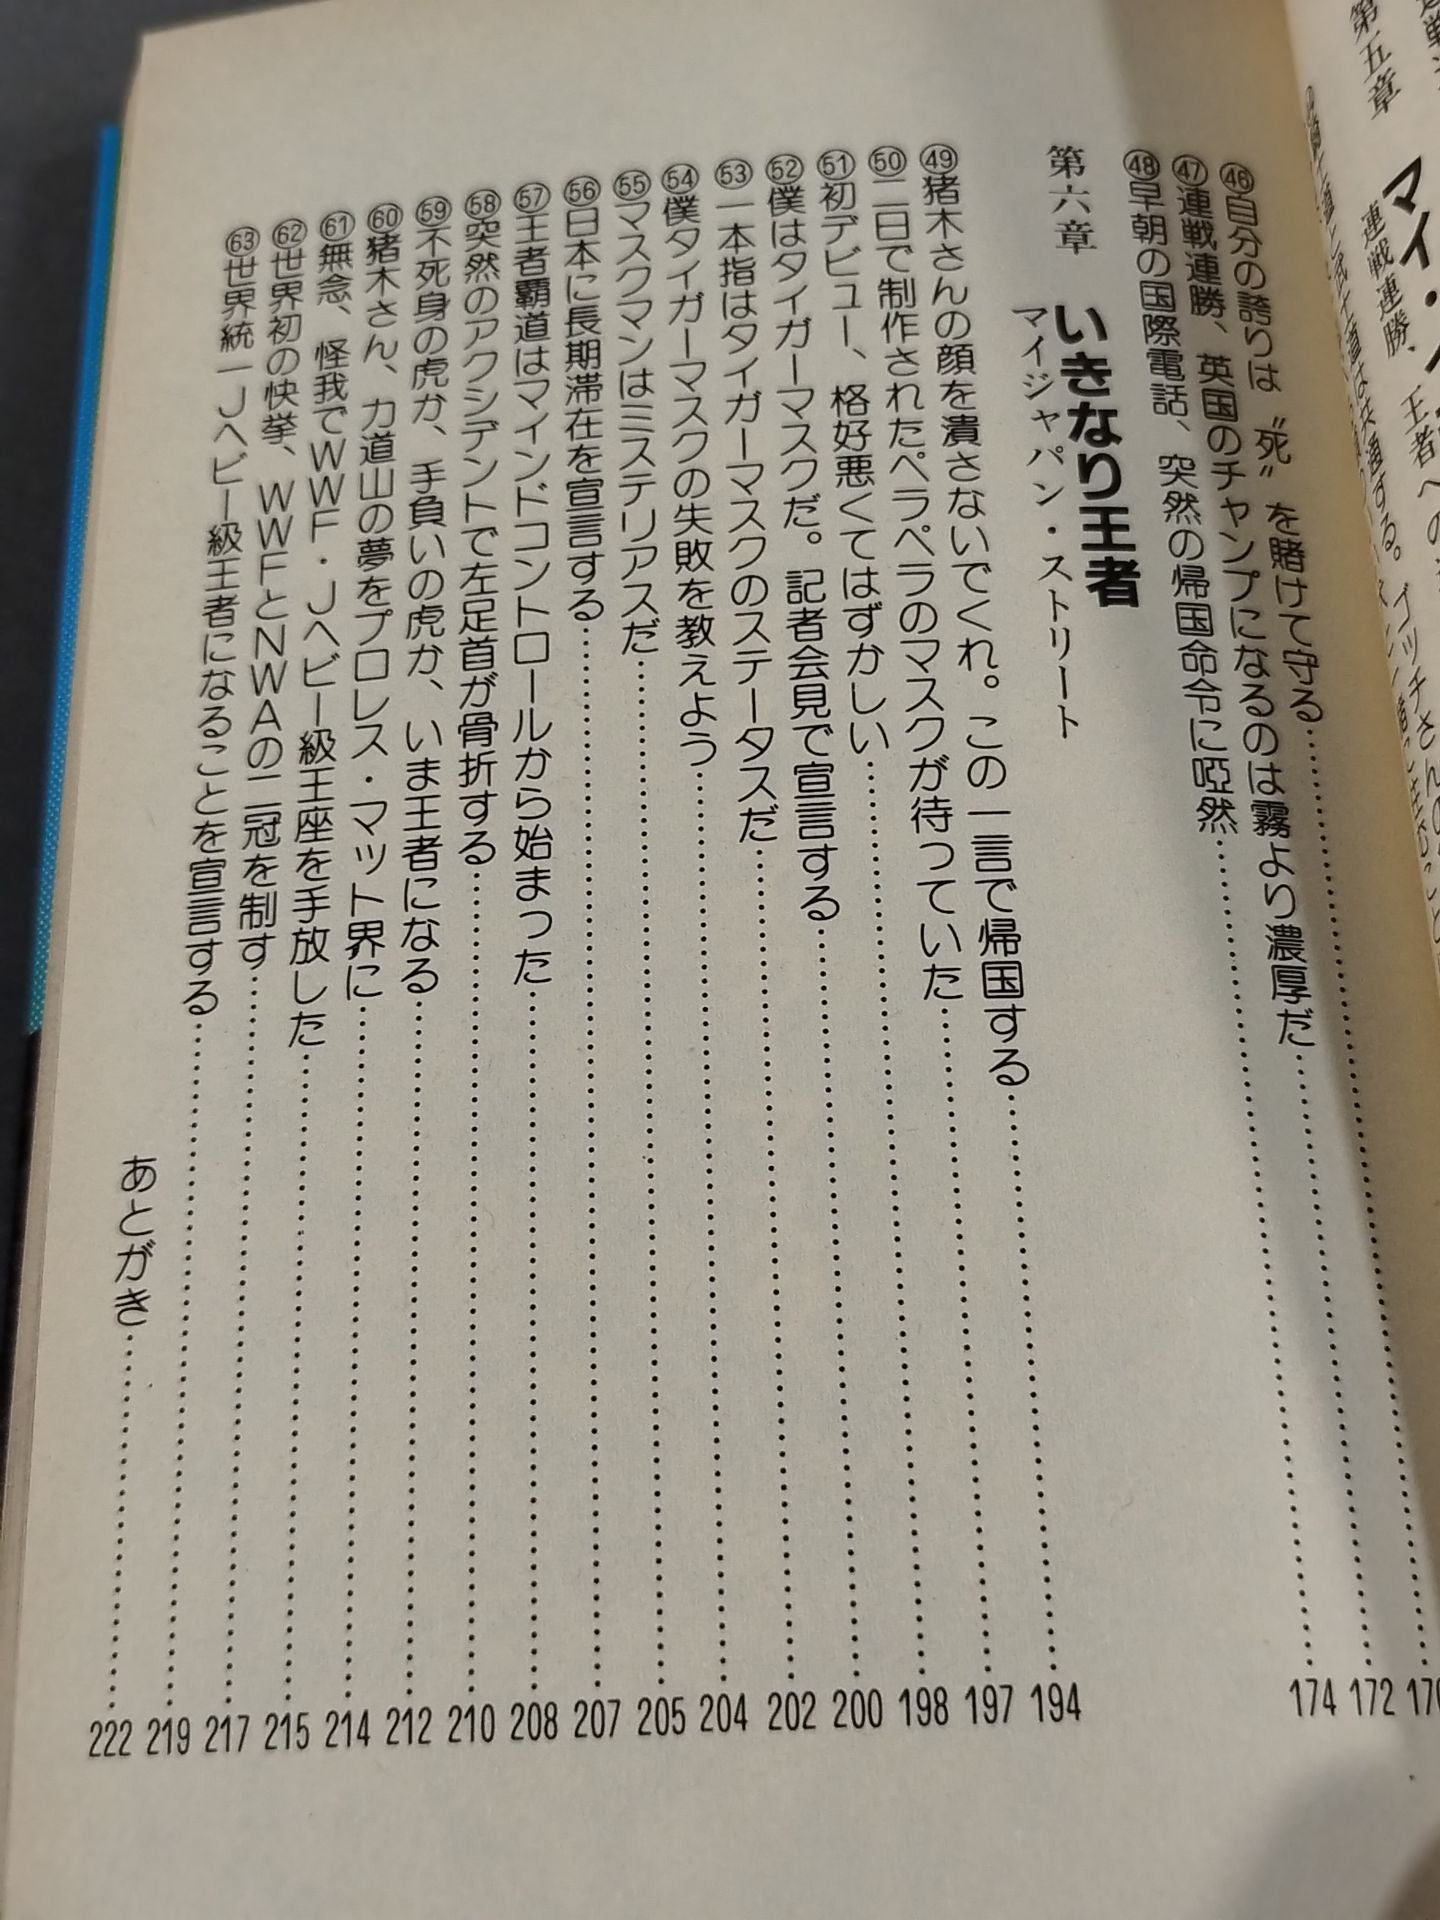 第五章
マイ・
連戦連勝、
王者への
ゴッチさんの
㊻自分の誇りは〝死〟を賭けて守る……170
㊼連戦連勝、英国のチャンプになるのは霧より濃厚だ……172
㊽早朝の国際電話、突然の帰国命令に啞然……174
第六章 いきなり王者
マイジャパン・ストリート
㊾猪木さんの顔を潰さないでくれ。この一言で帰国する……194
㊿二日で制作されたペラペラのマスクが待っていた……197
51初デビュー、格好悪くてはずかしい……198
52僕はタイガーマスクだ。記者会見で宣言する……200
53一本指はタイガーマスクのステータスだ……202
54僕タイガーマスクの失敗を教えよう……204
55マスクマンはミステリアスだ……205
56日本に長期滞在を宣言する……207
57王者覇道はマインドコントロールから始まった……208
58突然のアクシデントで左足首が骨折する……210
59不死身の虎か、手負いの虎か、いま王者になる……212
60猪木さん、力道山の夢をプロレス・マット界に……214
61無念、怪我でWWF・Jヘビー級王座を手放した……215
62世界初の快挙、WWFとNWAの二冠を制す……217
63世界統一Jヘビー級王者になることを宣言する……219
あとがき……222